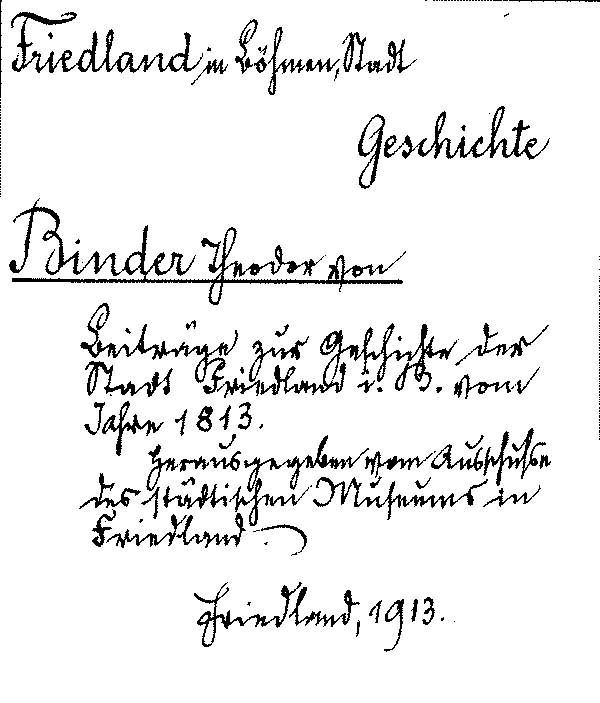 Friedland in Böhmen, Stadt
Geschichte
Binder Theodor von
Beiträge zur Geschichte der
Stadt Friedland i. B. vom
Jahre 1813.
Herausgegeben vom Ausschusse
des städtischen Museums in
Friedland.
Friedland, 1913.